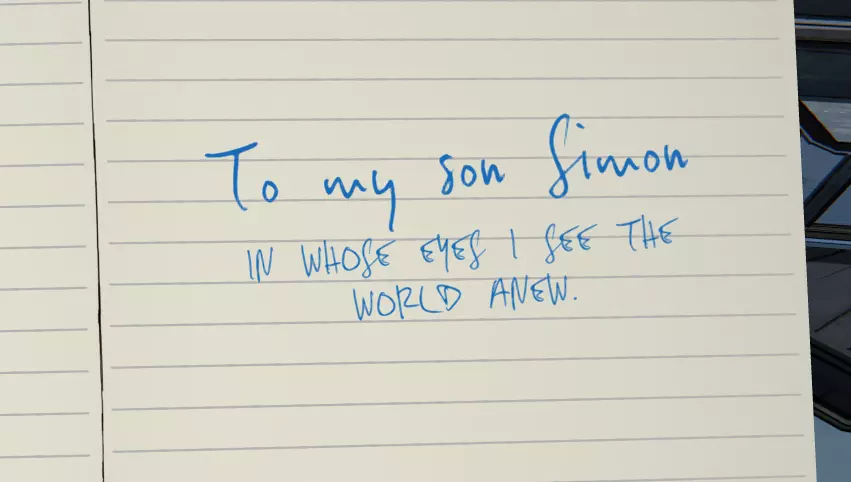 To my son Simon
IN WHOSE EYES I SEE THE
WORLD ANEW.